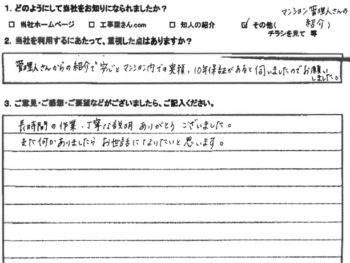 1. どのようにして当社をお知りになられましたか？
マンション管理人さんの
□ 当社ホームページ □ 工事屋さん.com □ 知人の紹介 ☑ その他( 紹介 )
チラシを見て 等
2. 当社を利用するにあたって、重視した点はありますか？
管理人さんからの紹介で安心とマンション内での実績、10年保証があると伺いましたのでお願い
しました。
3. ご意見・ご感想・ご要望などがございましたら、ご記入ください。
長時間の作業、丁寧な説明ありがとうございました。
また何かありましたらお世話になりたいと思います。